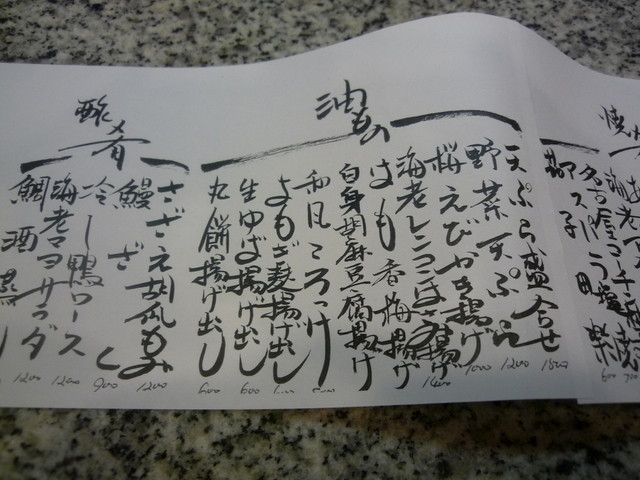 焼
茄子
油もの
天ぷら盛合せ 1800
野菜天ぷら 1200
桜えびかき揚げ 1000
海老レンコンはさみ揚げ 1400
はも香梅揚げ
白身胡麻豆腐揚げ
和風ころっけ
よもぎ麩揚げ出し
生ゆば揚げ出し 600
丸餅揚げ出し 600
酢肴
さざえ胡瓜もみ 1200
鰻ざく 900
冷し鴨ロース 1200
海老マヨサラダ 1200
鯛酒蒸し